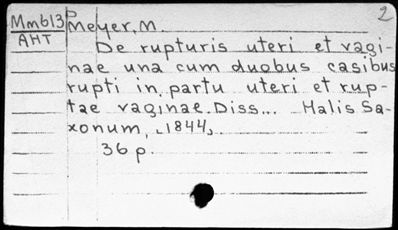 2
Mm613p Meyer, M.
AHT
De rupturis uteri et vagi-
nae una cum duobus casibus
rupti in partu uteri et rup-
tae vaginae. Diss... Halis Sa-
xonum, [1844]
36 p.